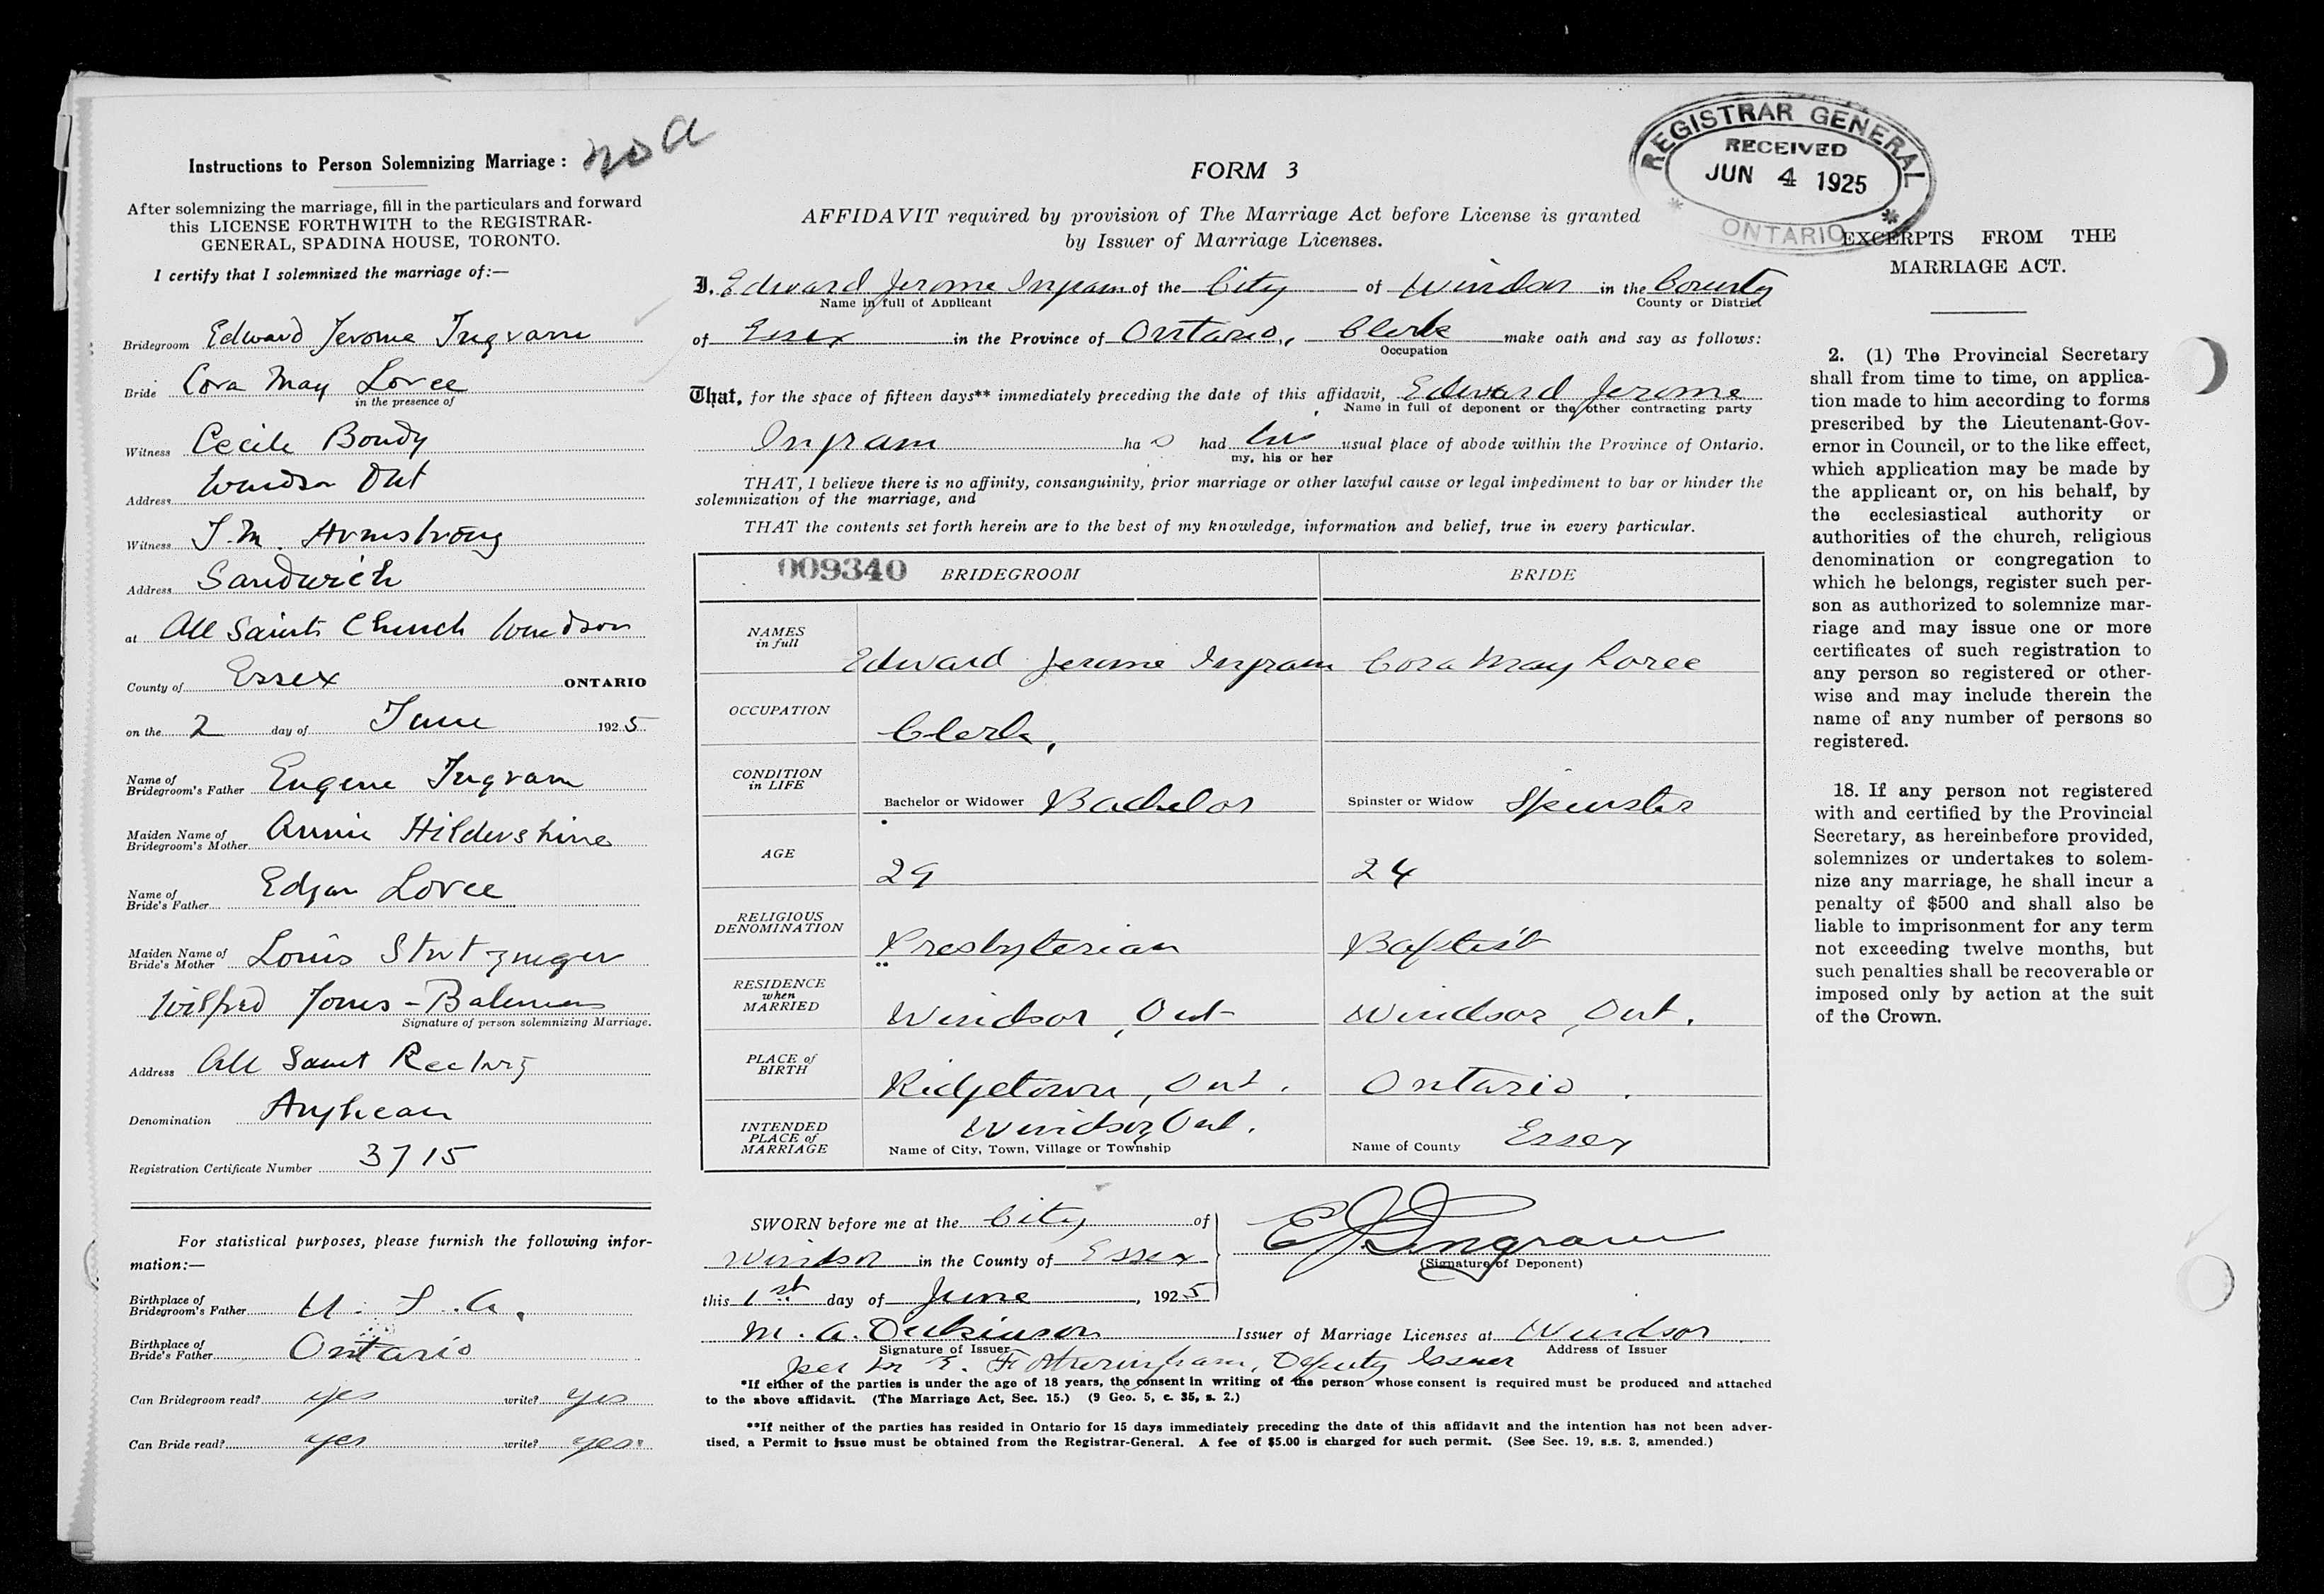 Instructions to Person Solemnizing Marriage:
no a
After solemnizing the marriage, fill in the particulars and forward
this LICENSE FORTHWITH to the REGISTRAR-
GENERAL, SPADINA HOUSE, TORONTO.
I certify that I solemnized the marriage of:—
Bridegroom Edward Jerome Ingram
Bride Cora May Loree
in the presence of
Witness Cecile Bondy
Address Windsor Ont
Witness J. M. Armstrong
Address Sandwich
at All Saints Church Windsor
County of Essex ONTARIO
on the 2 day of June 1925
Name of
Bridegroom's Father Eugene Ingram
Maiden Name of
Bridegroom's Mother Annie Hildershine
Name of
Bride's Father Edgar Loree
Maiden Name of
Bride's Mother Louis
Wilfred Jones-Bateman
Signature of person solemnizing Marriage.
Address All Saint Rectory
Denomination Anglican
Registration Certificate Number 3715
For statistical purposes, please furnish the following infor-
mation:—
Birthplace of
Bridegroom's Father U. S. A.
Birthplace of
Bride's Father Ontario
Can Bridegroom read? yes write? yes
Can Bride read? yes write? yes
FORM 3
AFFIDAVIT required by provision of The Marriage Act before License is granted
by Issuer of Marriage Licenses.
I, Edward Jerome Ingram of the City of Windsor in the County
Name in full of Applicant County or District
of Essex in the Province of Ontario, Clerk make oath and say as follows:
Occupation
That, for the space of fifteen days** immediately preceding the date of this affidavit, Edward Jerome
Name in full of deponent or the other contracting party
Ingram has had his usual place of abode within the Province of Ontario.
my, his or her
THAT, I believe there is no affinity, consanguinity, prior marriage or other lawful cause or legal impediment to bar or hinder the
solemnization of the marriage, and
THAT the contents set forth herein are to the best of my knowledge, information and belief, true in every particular.
009340 BRIDEGROOM BRIDE
NAMES
in full
Edward Jerome Ingram Cora May Loree
OCCUPATION
Clerk,
CONDITION
in LIFE
Bachelor or Widower Bachelor Spinster or Widow Spinster
AGE
29 24
RELIGIOUS
DENOMINATION
Presbyterian Baptist
RESIDENCE
when
MARRIED
Windsor, Ont Windsor, Ont.
PLACE of
BIRTH
Ridgetown, Ont. Ontario.
INTENDED
PLACE of
MARRIAGE
Windsor, Ont. Essex
Name of City, Town, Village or Township Name of County
SWORN before me at the City of
Windsor in the County of Essex
this 1st day of June, 1925
E J Ingram
(Signature of Deponent)
M. A. Dickinson Issuer of Marriage Licenses at Windsor
Signature of Issuer Address of Issuer
per M E. Fotheringham, Deputy Issuer
*If either of the parties is under the age of 18 years, the consent in writing of the person whose consent is required must be produced and attached
to the above affidavit. (The Marriage Act, Sec. 15.) (9 Geo. 5, c. 35, s. 2.)
**If neither of the parties has resided in Ontario for 15 days immediately preceding the date of this affidavit and the intention has not been adver-
tised, a Permit to issue must be obtained from the Registrar-General. A fee of $5.00 is charged for such permit. (See Sec. 19, s.s. 3, amended.)
REGISTRAR GENERAL
RECEIVED
JUN 4 1925
* ONTARIO *
EXCERPTS FROM THE
MARRIAGE ACT.
2. (1) The Provincial Secretary
shall from time to time, on applica-
tion made to him according to forms
prescribed by the Lieutenant-Gov-
ernor in Council, or to the like effect,
which application may be made by
the applicant or, on his behalf, by
the ecclesiastical authority or
authorities of the church, religious
denomination or congregation to
which he belongs, register such per-
son as authorized to solemnize mar-
riage and may issue one or more
certificates of such registration to
any person so registered or other-
wise and may include therein the
name of any number of persons so
registered.
18. If any person not registered
with and certified by the Provincial
Secretary, as hereinbefore provided,
solemnizes or undertakes to solem-
nize any marriage, he shall incur a
penalty of $500 and shall also be
liable to imprisonment for any term
not exceeding twelve months, but
such penalties shall be recoverable or
imposed only by action at the suit
of the Crown.